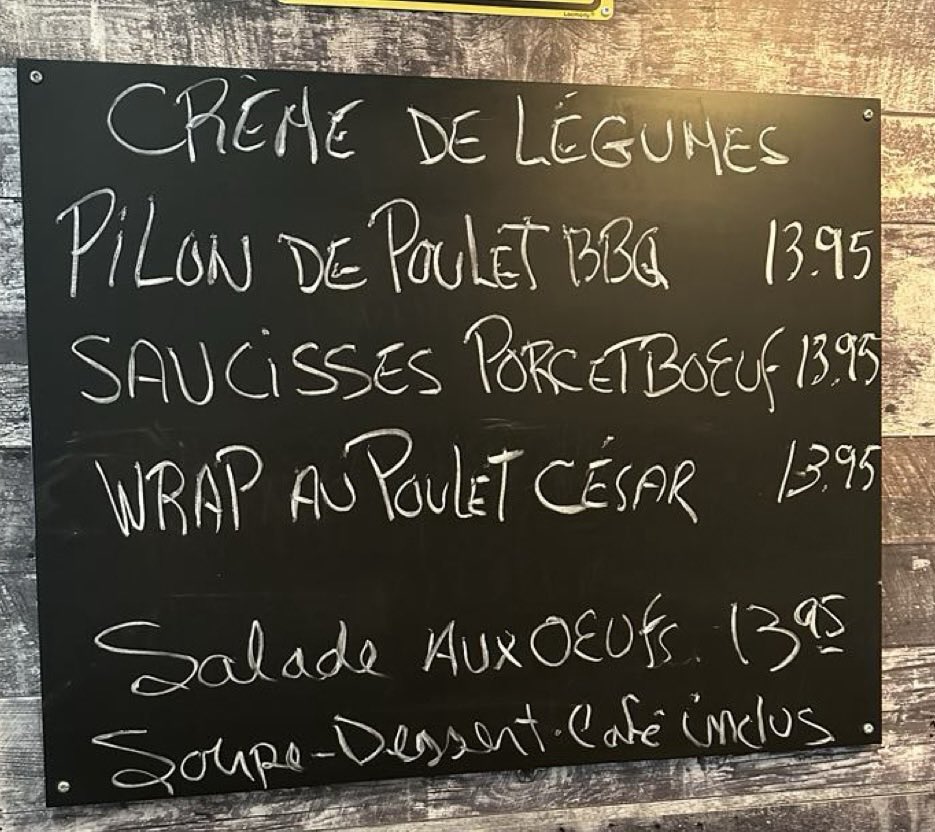 CRÈME DE LÉGUMES
PiLON DE POULET BBQ 13.95
SAUCiSSES PORC ET BOEUF 13.95
WRAP AU POULET CÉSAR 13.95
Salade AUX OEUFs. 13 95
Soupe-Dessert.Café inclus